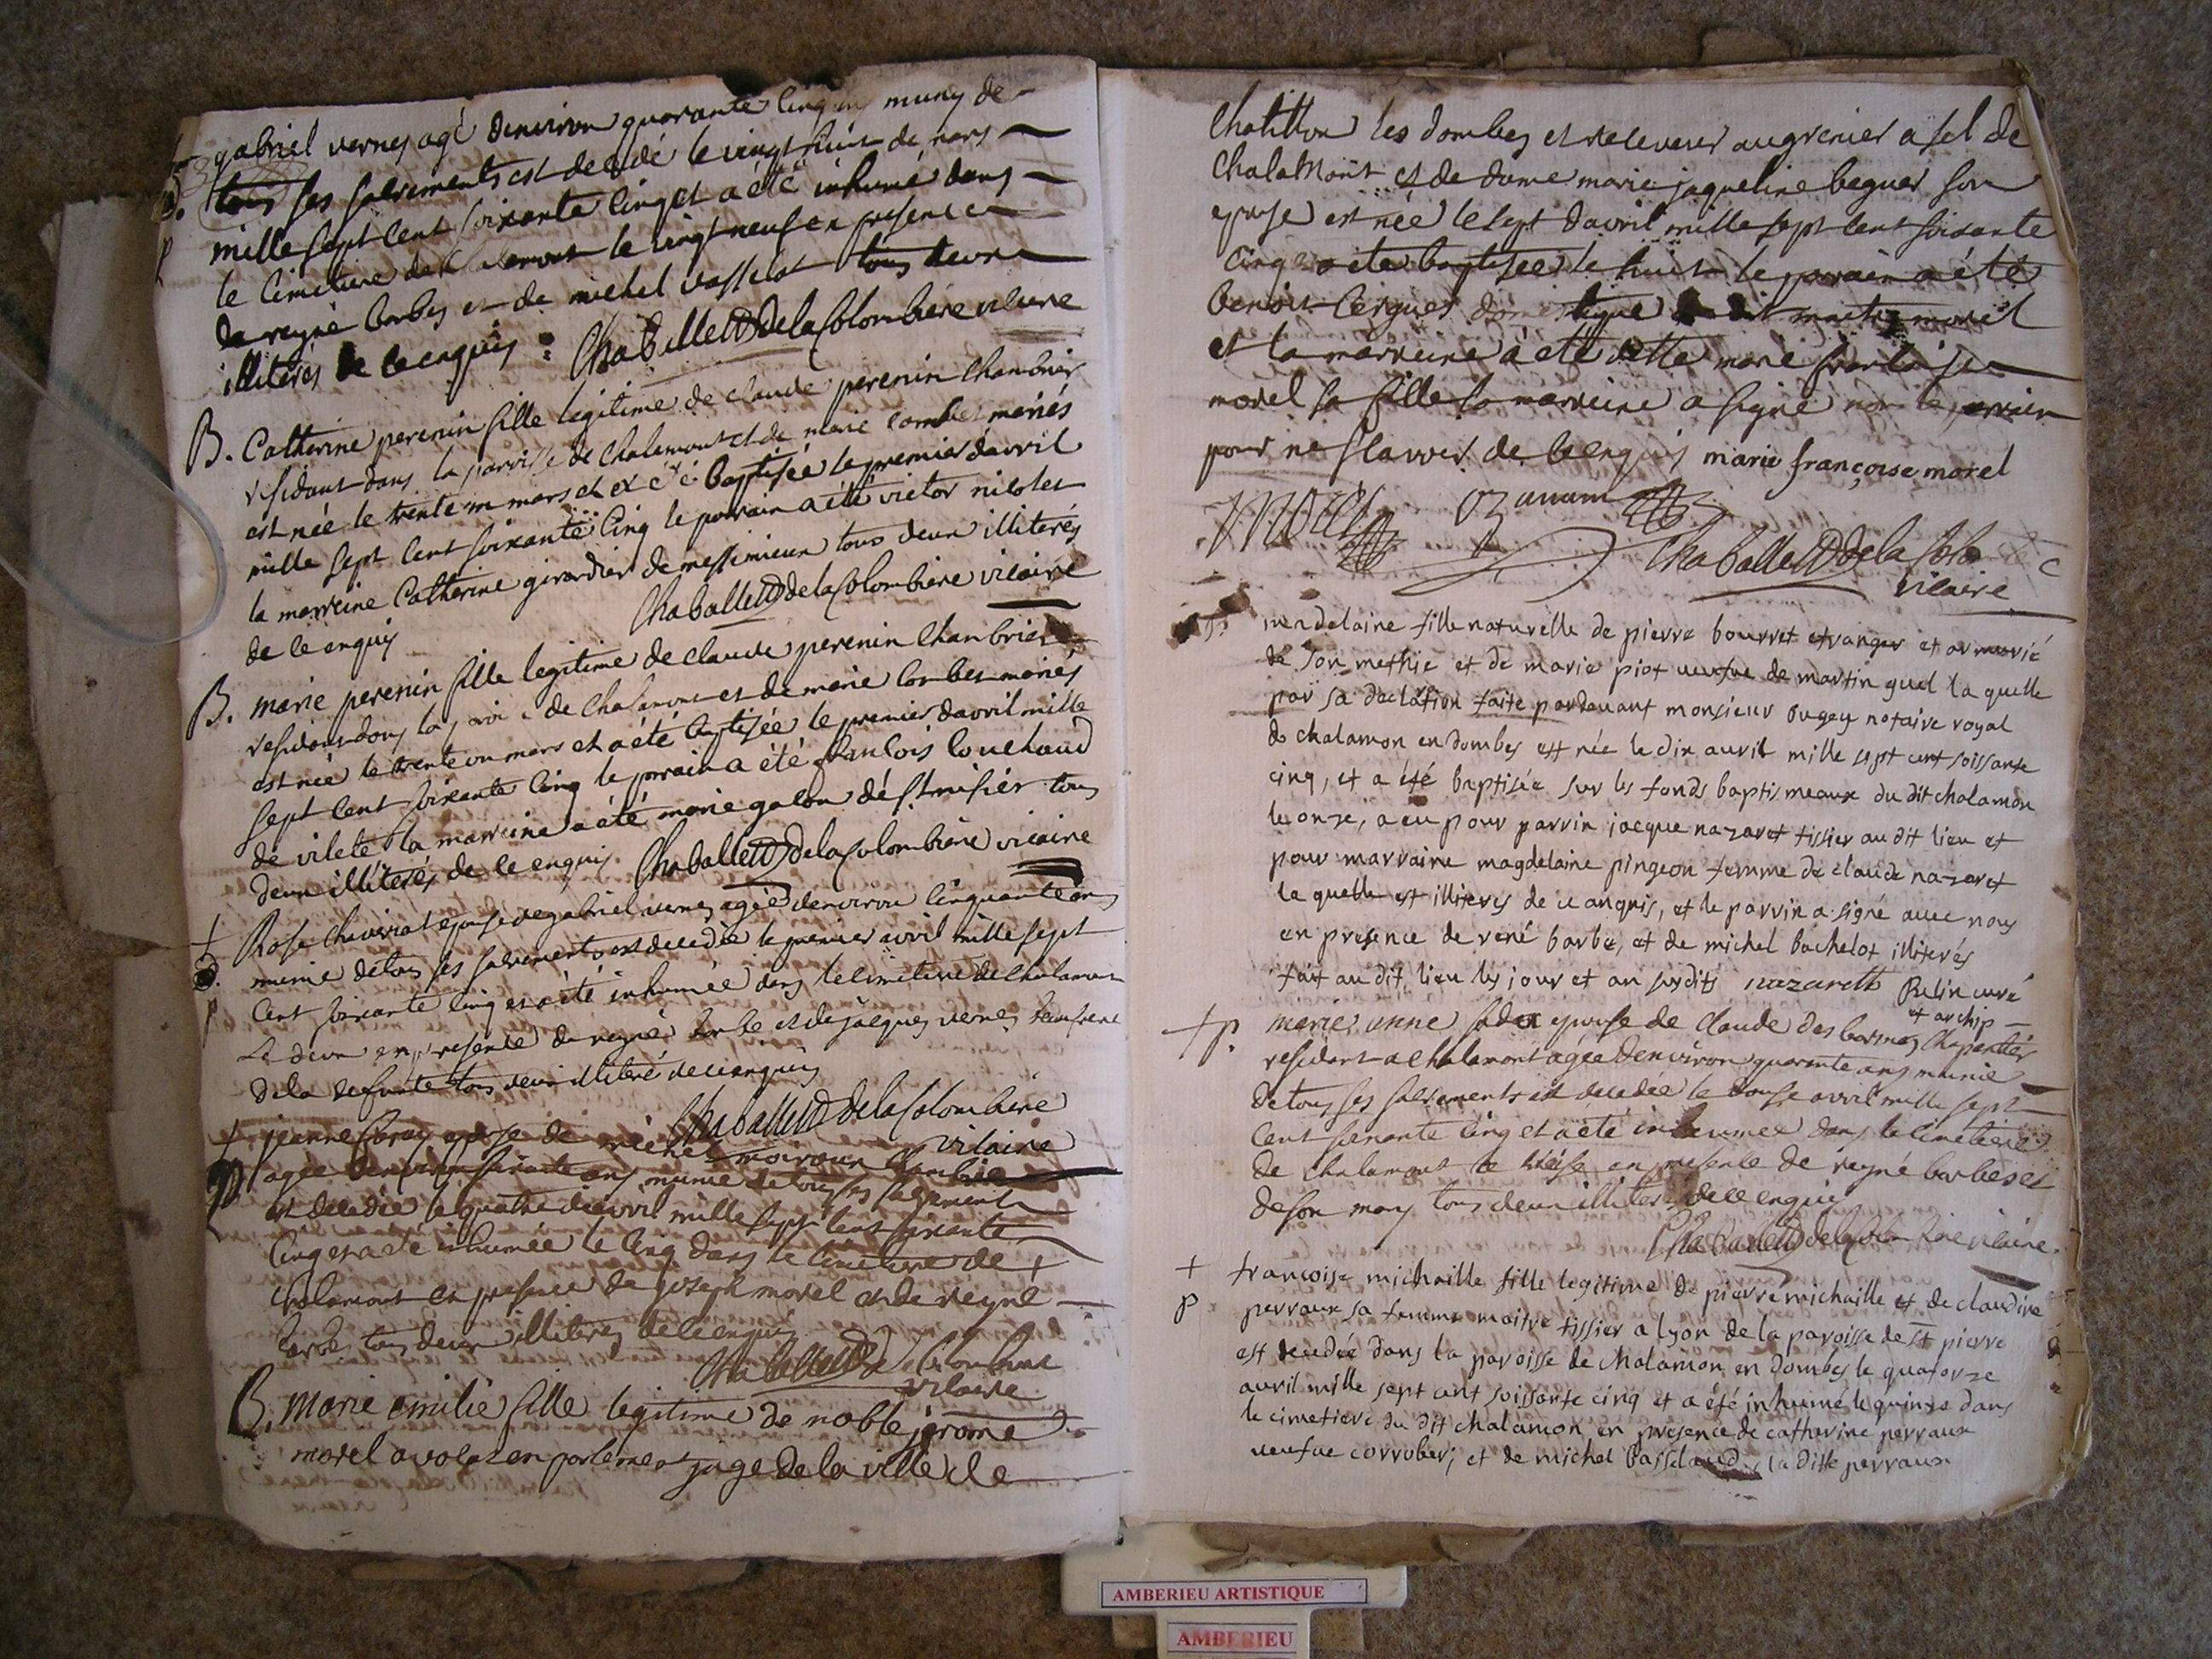 gabriel vernes agé denviron quarante cinq ans muny de
tous ses sacrements est decedé le vingt huit de mars
mille sept cent soixante cinq et a été inhumé dans
le cimetiere de chalamont le vingt neuf en presence
de reyné barbes et de michel vasselot tous deux
illiterés de ce enquis : Chaballet de la Colombiere vicaire
B. Catherine perenin fille legitime de claude perenin chambrier
residant dans la parroisse de chalamont et de marie combet mariés
est née le trente un mars et a été baptisée le premier davril
mille sept cent soixante cinq le parrain a été victor nicolet
la marreine Catherine girardier de messimieux tous deux illiterés
de ce enquis Chaballet de la Colombiere vicaire
B. marie perenin fille legitime de claude perenin chambrier
residant dans la paroisse de chalamont et de marie combet mariés
est née le trente un mars et a été baptisée le premier davril mille
sept cent soixante cinq le parrain a été francois couchaud
de vilete la marreine a été marie galon tous
deux illiterés de ce enquis. Chaballet de la Colombiere vicaire
+ Rose chivriat epouse de gabriel vernes agée denviron cinquante ans
D. munie de tous ses sacrements est decedée le premier avril mille sept
p cent soixante cinq et a été inhumée dans le cimetiere de chalamont
Le deux en presence de reyné barbe et de jacques vernes beaufrere
de la defunte tous deux illiteré de ce enquis
Chaballet de la Colombiere
vicaire
+ jeanne epouse de michel moiroux chambrier
p agée denviron soixante ans munie de tous ses sacrements
est decedée le quatre davril mille sept cent soixante
cinq et a été inhumée le cinq dans le cimetiere de +
chalamont en presence de joseph morel et de reyné
barbes tous deux illiteres de ce enquis
Chaballet de la Colombiere
vicaire
B. Marie emilie fille legitime de noble jerome
morel avocat en parlement juge de la ville de
Chatillon les dombes et receveur au grenier a sel de
chalamont et de dame marie jaqueline beguet son
epouse est née le sept davril mille sept cent soixante
cinq a été baptisée le huit le parrain a été
benoit domestique dudit maitre morel
et la marreine a été dlle marie francoise
morel sa fille la marreine a signé non le parrain
pour ne scavoir de ce enquis marie françoise morel
Morel Ozanam
Chaballet de la Colo
vicaire
madelaine fille naturelle de pierre bourret etranger et
de son methie et de marie piot veufve de martin guel la quelle
par sa daclation faite pardevant monsieur bugey notaire royal
de chalamon en dombes est née le dix avril mille sept cent soissante
cinq, et a été baptisée sur les fonds baptismeaux du dit chalamon
le onze, a eu pour parrin jacque nazaret tissier au dit lieu et
pour marraine magdelaine pingeon femme de claude nazaret
la quelle est illiteres de ce anquis, et le parrin a signé avec nous
en presence de rené barbe, et de michel bachelot illiterés
fait au dit lieu les jour et an susdits nazareth Belin curé
et archip
+ p. marie anne epouse de claude des bornes Chapentier
residant a chalamont agée denviron quarante ans munie
de tous ses sacrements est decedée le douse avril mille sept
cent soixante cinq et a été inhumée dans le cimetiere
de chalamont le treise en presence de reyné barbes et
de son mary tous deux illiteres de ce enquis
Chaballet de la Colombiere vicaire
+ francoise michaille fille legitime de pierre michaille et de claudine
p perraux sa femme maitre tissier a lyon de la paroisse de st pierre
est decedée dans la paroisse de chalamon en dombes le quatorze
avril mille sept cent soissante cinq et a été inhumé le quinze dans
le cimetiere du dit chalamon, en presence de catherine perraux
veufve corrober, et de michel basselaud la ditte perraux
AMBERIEU ARTISTIQUE
AMBERIEU